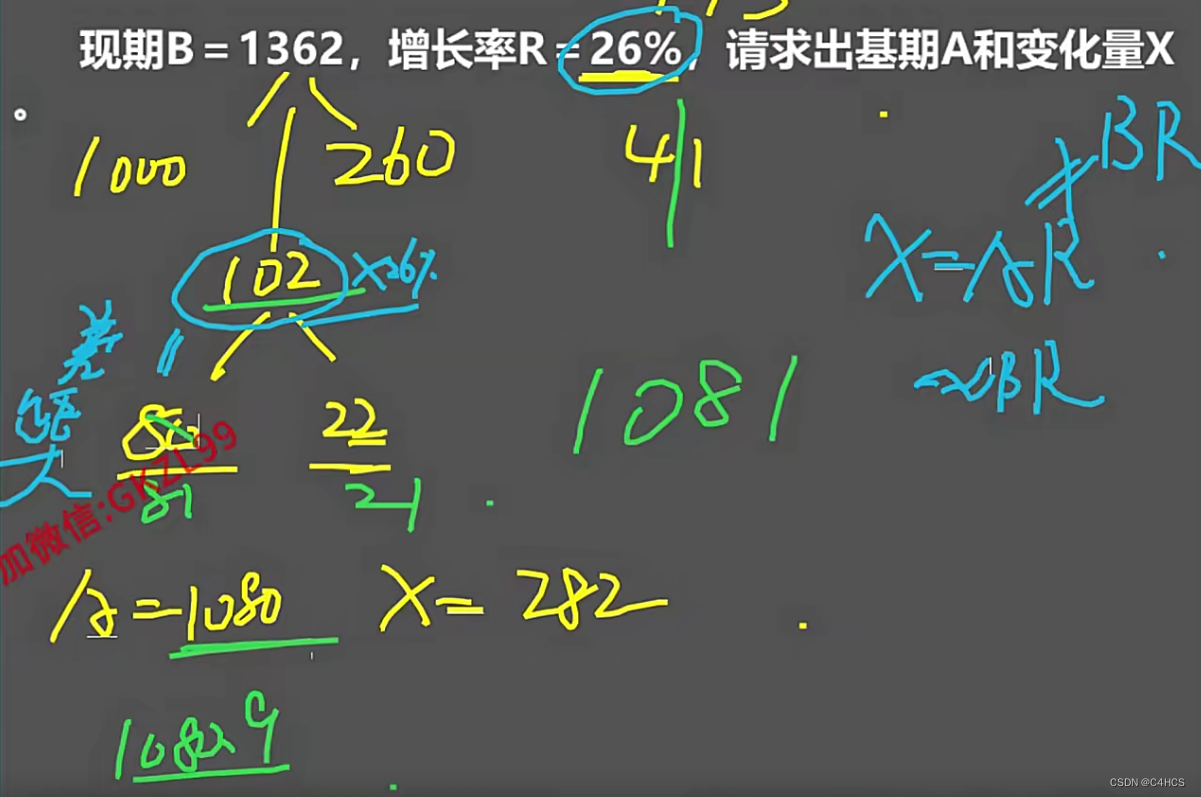 现期B=1362，增长率R=26%，请求出基期A和变化量X
。
1000 260 41
BR
X=AR
102 ×26%
≈BR
差
1081
80 22
大
81 21
加微信:GKZL99
A=1080 X=282
CSDN @C4HCS